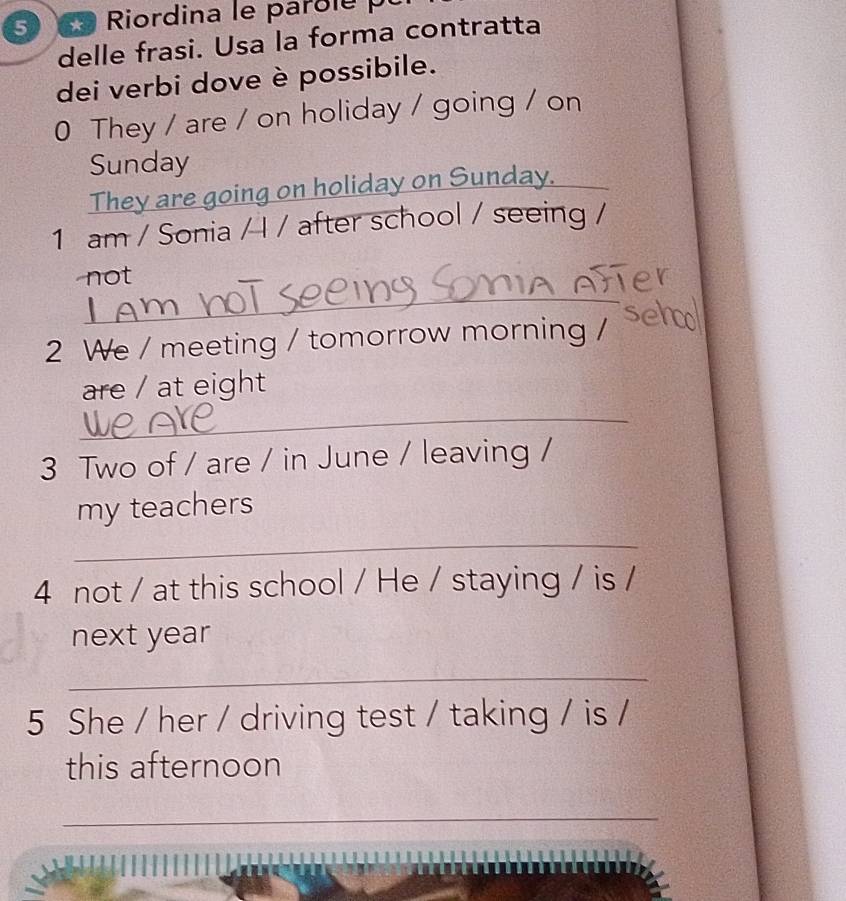 5 Riordina le parole
delle frasi. Usa la forma contratta
dei verbi dove è possibile.
0 They / are / on holiday / going / on
Sunday
They are going on holiday on Sunday.
1 am / Sonia / I / after school / seeing /
not
I Am noT seeing SoniA AfTer
school
2 We / meeting / tomorrow morning /
are / at eight
We Are
3 Two of / are / in June / leaving /
my teachers
4 not / at this school / He / staying / is /
next year
5 She / her / driving test / taking / is /
this afternoon